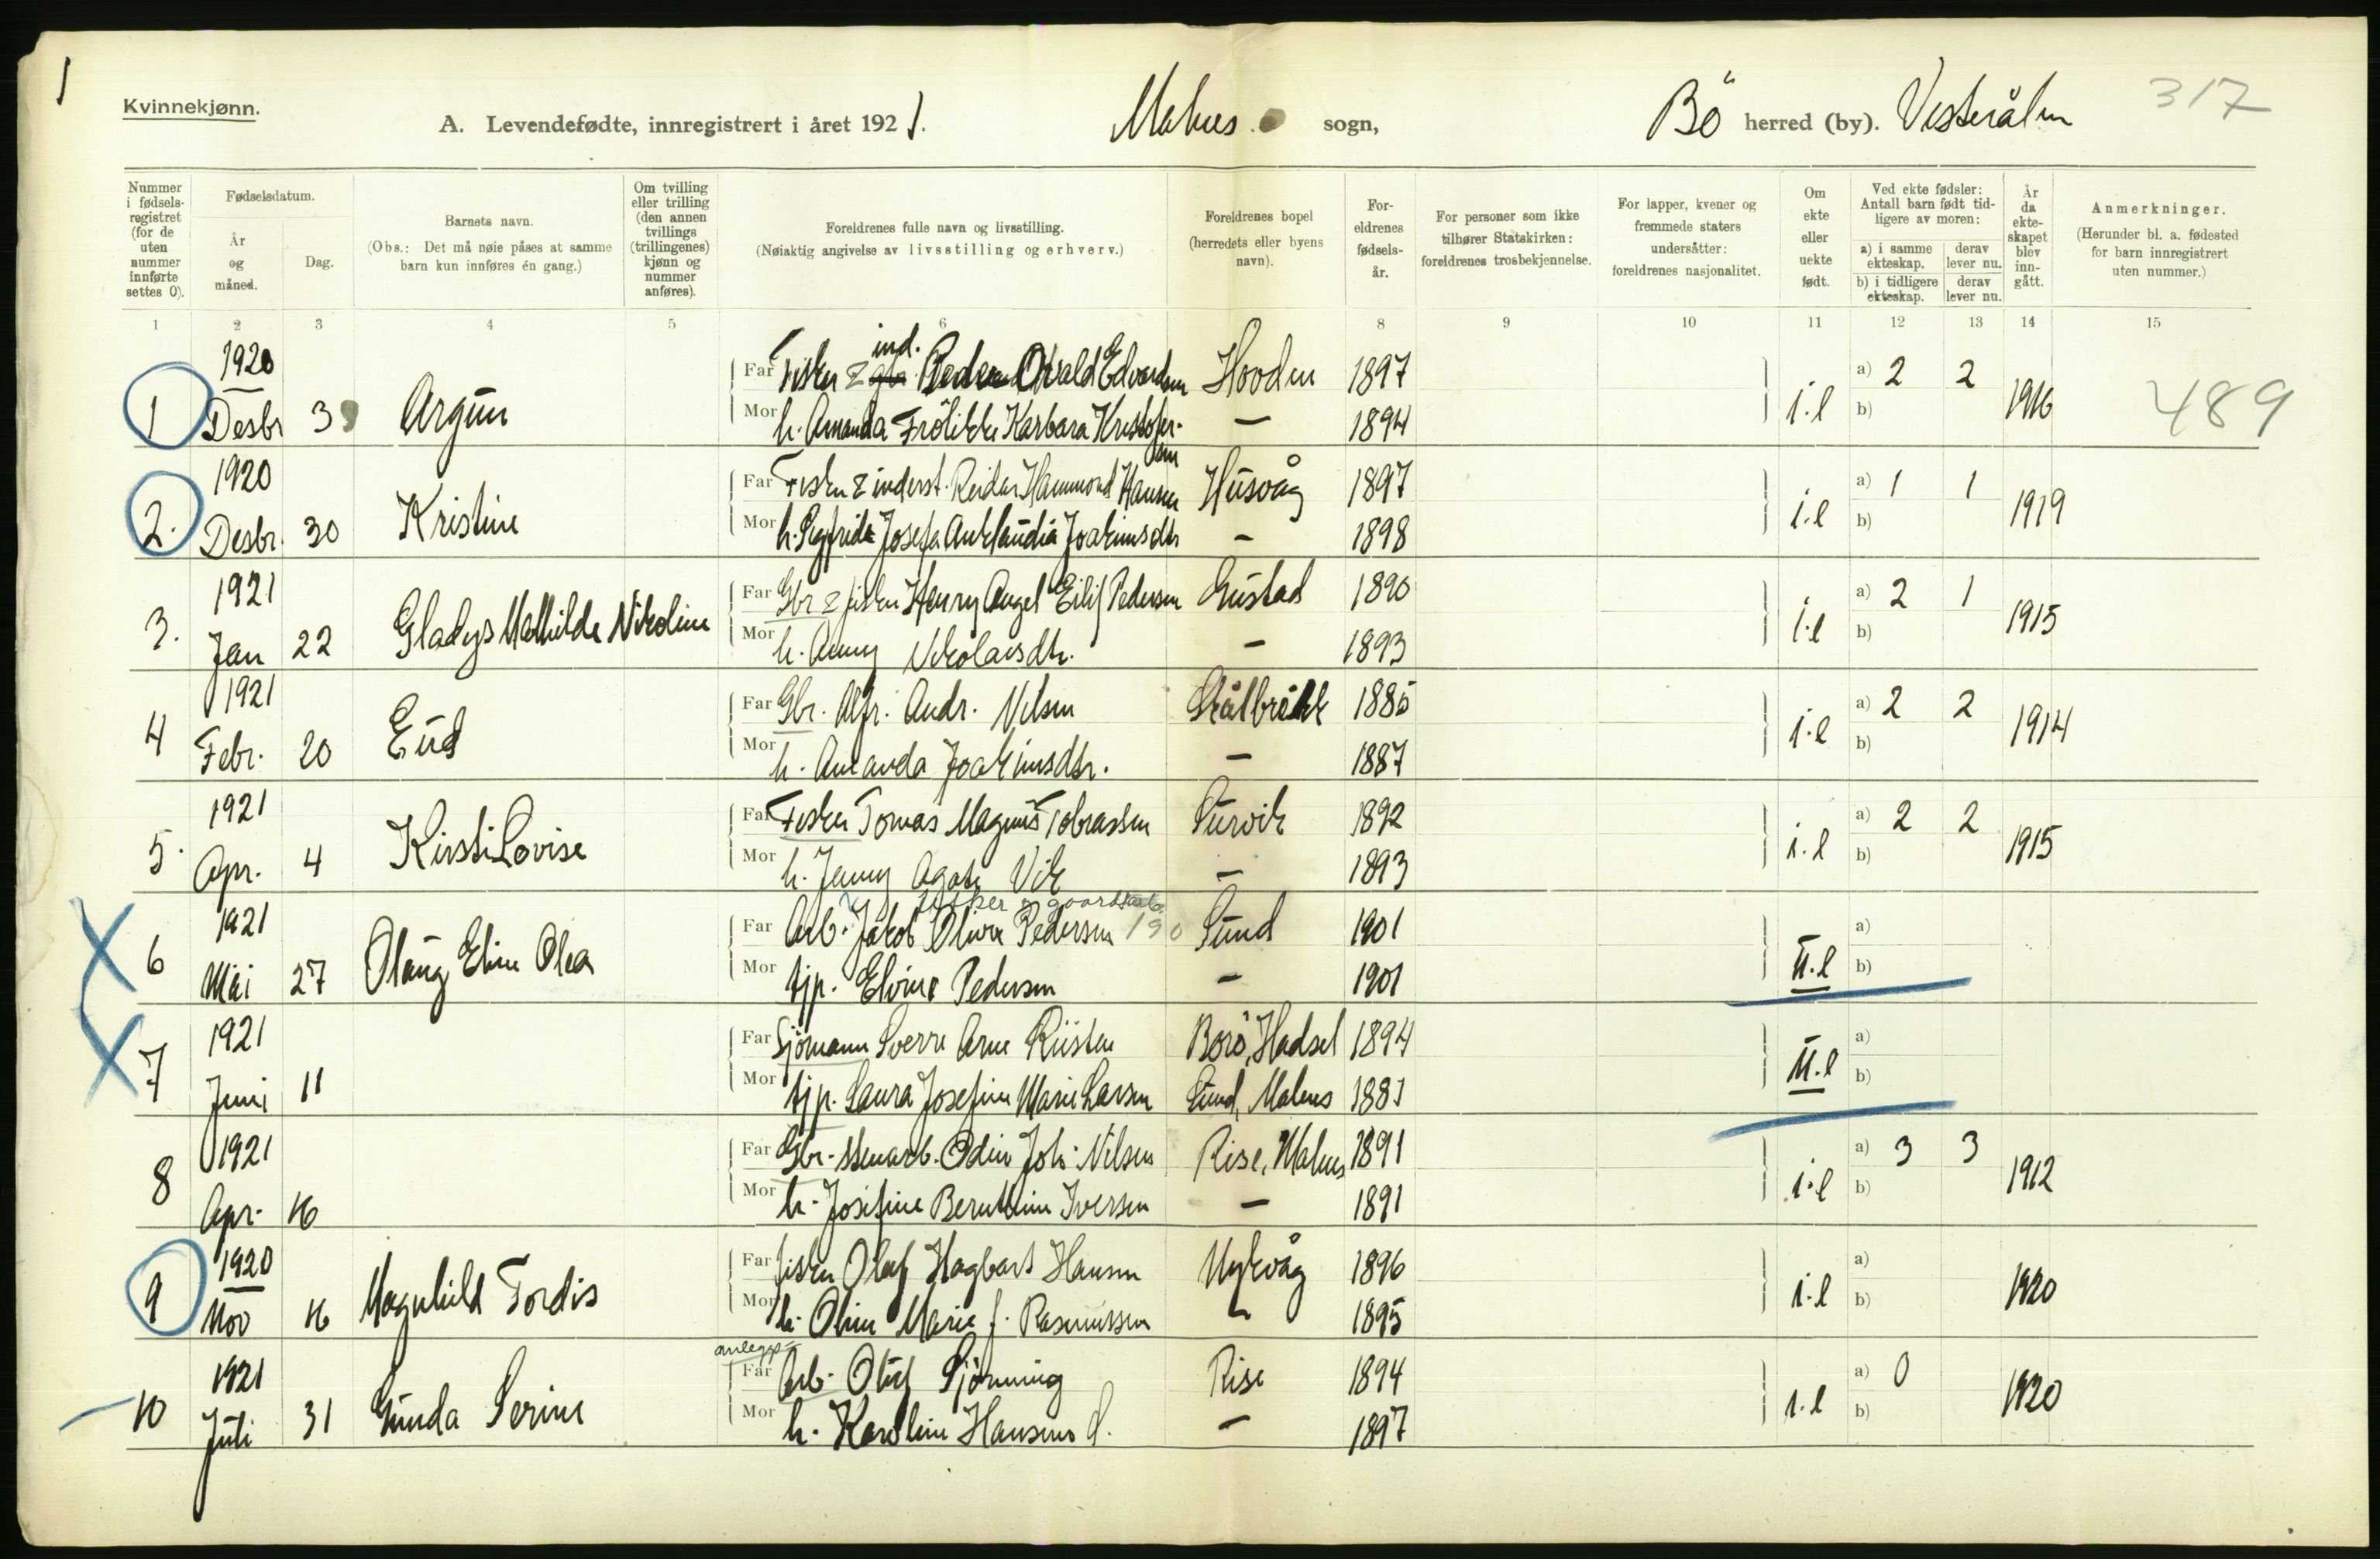 1
Kvinnekjønn.
A. Levendefødte, innregistrert i året 1921. Malnes sogn, Bö herred (by). Vesterålen 317
Nummer i fødselsregistret (for de uten nummer innførte settes 0).
Fødselsdatum.
År og måned.
Dag.
Barnets navn.
(Obs.: Det må nøie påses at samme barn kun innføres én gang.)
Om tvilling eller trilling (den annen tvillings (trillingenes) kjønn og nummer anføres).
Foreldrenes fulle navn og livsstilling.
(Nøiaktig angivelse av livsstilling og erhverv.)
Foreldrenes bopel (herredets eller byens navn).
Foreldrenes fødselsår.
For personer som ikke tilhører Statskirken: foreldrenes trosbekjennelse.
For lapper, kvener og fremmede staters undersåtter: foreldrenes nasjonalitet.
Om ekte eller uekte født.
Ved ekte fødsler: Antall barn født tidligere av moren:
a) i samme ekteskap. derav lever nu.
b) i tidligere ekteskap. derav lever nu.
År da ekteskapet blev inngått.
Anmerkninger.
(Herunder bl. a. fødested for barn innregistrert uten nummer.)
1 2 3 4 5 6 8 9 10 11 12 13 14 15
1920 Far Fisker & ind. Peder Osvald Edvardsen Hovden 1897 a) 2 2
1 Desbr 3 Argun Mor h. Amanda Frölikke Karbara Kristofersen — 1894 i.l b) 1916 489
1920 Far Fisker & inderst. Reidar Hammond Hansen Husvåg 1897 a) 1 1
2. Desbr. 30 Kristine Mor h. Sigfrida Josefa Anklaudia Joakimsdtr — 1898 i.l b) 1919
1921 Far Gbr & fisker Henry Angel Eilif Pedersen Gustad 1890 a) 2 1
3. Jan 22 Gladys Mathilde Nikoline Mor h. Anny Nikolaisdtr. — 1893 i.l b) 1915
1921 Far Gbr. Alfr. Andr. Nilsen Skålbrekk 1885 a) 2 2
4 Febr. 20 Eud Mor h. Amanda Joakimsdtr. — 1887 i.l b) 1914
1921 Far Fisker Tomas Magnus Tobiassen Turvik 1892 a) 2 2
5. Apr. 4 Kirsti Lovise Mor h. Jenny Agate Vik — 1893 i.l b) 1915
fisker & gaardsarb.
1921 Far Arb. Jakob Oliver Pedersen 190 Sund 1901 a)
6 Mai 27 Olaug Eline Olea Mor tjp. Elvine Pedersen — 1901 U.l b)
1921 Far Sjömann Sverre Arne Risten Borö, Hadsel 1894 a)
7 Juni 11 Mor tjp. Laura Josefine Marie Larsen Sund, Malnes 1881 U.l b)
1921 Far Gbr. Odin Joh. Nilsen Rise, Malnes 1891 a) 3 3
8 Apr. 16 Mor h. Josefine Bernthine Iversen — 1891 i.l b) 1912
1920 Far fisker Olaf Hagbart Hansen Nykvåg 1896 a)
9 Nov 16 Magnhild Tordis Mor h. Oline Marie f. Rasmussen — 1895 i.l b) 1920
anleggs=
1921 Far Arb. Oluf Sjönning Rise 1894 a) 0
10 Juli 31 Gunda Serine Mor h. Karoline Hansens d. — 1897 i.l b) 1920